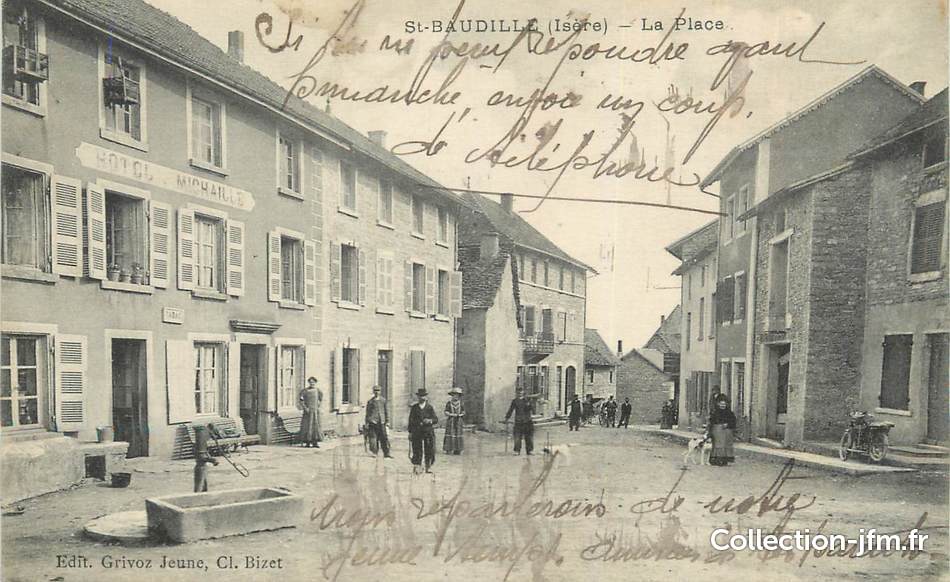 St-BAUDILLE (Isère) – La Place
Si tu ne peux répondre ayant
dimanche, envoie un coup
de téléphone
HOTEL MICHAILLE
TABAC
de notre
jeune
Edit. Grivoz Jeune, Cl. Bizet
Collection-jfm.fr